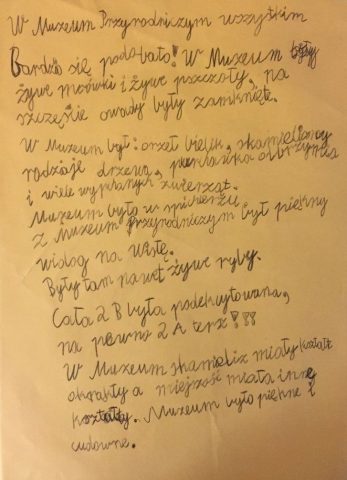 W Muzeum Przyrodniczym wszystkim
Bardzo się podobało! W Muzeum były
żywe mrówki i żywe pszczoły, na
szczęście owady były zamknięte.
W Muzeum był: orzeł bielik, skamieliny
rodzaje drzewa, olbrzymia
i wiele wypchanych zwierząt.
Muzeum było w spichlerzu
z Muzeum Przyrodniczym był piękny
widog na Wisłę.
Były tam nawet żywe ryby.
Cała 2 B była podekcytowana,
na pewno 2 A terz!!!
W Muzeum skamieliz miały kształt
okrągły a miejszość miała inne
kształty. Muzeum było piękne i
cudowne.